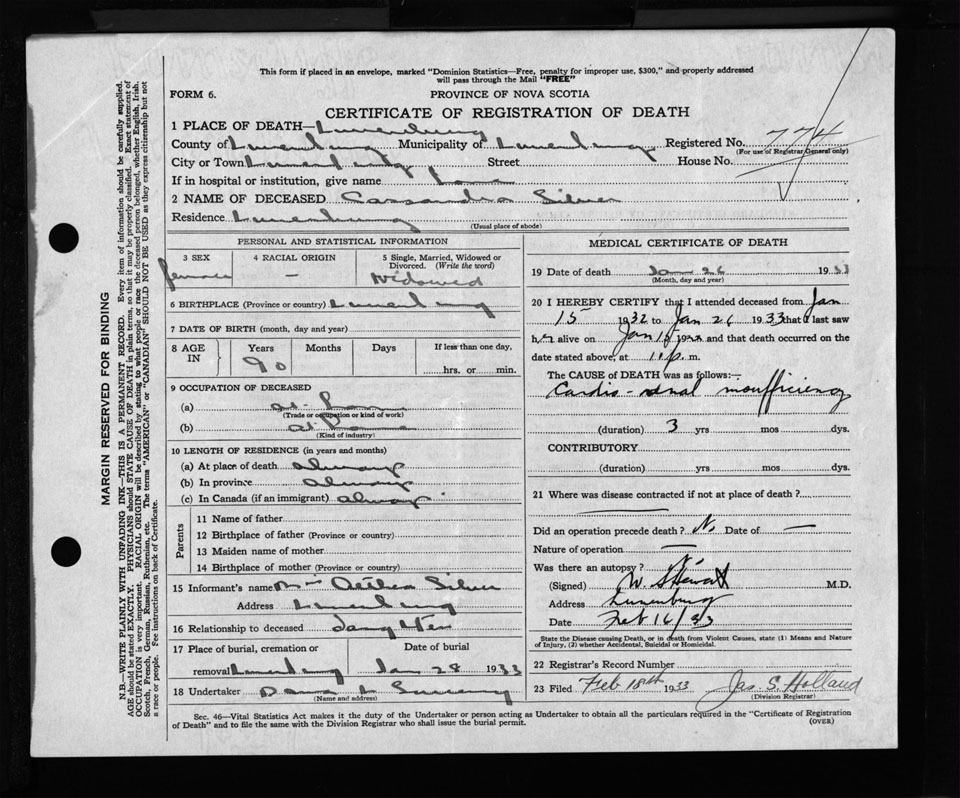 This form if placed in an envelope, marked "Dominion Statistics—Free, penalty for improper use, $300," and properly addressed
will pass through the Mail "FREE"
FORM 6. PROVINCE OF NOVA SCOTIA
CERTIFICATE OF REGISTRATION OF DEATH
1 PLACE OF DEATH— Lunenburg
County of Lunenburg Municipality of Lunenburg Registered No. 774
(For use of Registrar General only)
City or Town Lunenburg Street House No.
If in hospital or institution, give name
2 NAME OF DECEASED Cassandra Silver
Residence Lunenburg
(Usual place of abode)
PERSONAL AND STATISTICAL INFORMATION
3 SEX 4 RACIAL ORIGIN 5 Single, Married, Widowed or
Divorced. (Write the word)
female — Widowed
6 BIRTHPLACE (Province or country) Lunenburg
7 DATE OF BIRTH (month, day and year)
8 AGE IN Years Months Days If less than one day,
90 hrs. or min.
9 OCCUPATION OF DECEASED
(a) at home
(Trade or occupation or kind of work)
(b) at home
(Kind of industry)
10 LENGTH OF RESIDENCE (in years and months)
(a) At place of death always
(b) In province always
(c) In Canada (if an immigrant) always
Parents
11 Name of father
12 Birthplace of father (Province or country)
13 Maiden name of mother
14 Birthplace of mother (Province or country)
15 Informant's name Alethea Silver
Address Lunenburg
16 Relationship to deceased daughter
17 Place of burial, cremation or Date of burial
removal Lunenburg Jan 28 1933
18 Undertaker
(Name and address)
MEDICAL CERTIFICATE OF DEATH
19 Date of death Jan 26 1933
(Month, day and year)
20 I HEREBY CERTIFY that I attended deceased from Jan
15 1932 to Jan 26 1933 that I last saw
her alive on Jan 15 19 and that death occurred on the
date stated above, at 11 p. m.
The CAUSE of DEATH was as follows:—
Cardio-renal insufficiency
(duration) 3 yrs mos dys.
CONTRIBUTORY
(duration) yrs. mos. dys.
21 Where was disease contracted if not at place of death?
Did an operation precede death? No Date of —
Nature of operation —
Was there an autopsy?
(Signed) W. Stewart M.D.
Address Lunenburg
Date Feb 16/33
State the Disease causing Death, or in death from Violent Causes, state (1) Means and Nature
of Injury, (2) whether Accidental, Suicidal or Homicidal.
22 Registrar's Record Number
23 Filed Feb 18th 1933 Jas S. Holland
(Division Registrar)
Sec. 46—Vital Statistics Act makes it the duty of the Undertaker or person acting as Undertaker to obtain all the particulars required in the "Certificate of Registration
of Death" and to file the same with the Division Registrar who shall issue the burial permit. (OVER)
MARGIN RESERVED FOR BINDING
N.B.—WRITE PLAINLY WITH UNFADING INK—THIS IS A PERMANENT RECORD. Every item of information should be carefully supplied.
AGE should be stated EXACTLY. PHYSICIANS should STATE CAUSE OF DEATH in plain terms, so that it may be properly classified. Exact statement of
OCCUPATION is very important. RACIAL ORIGIN will be described by stating to what people or race the deceased person belonged, whether English, Irish,
Scotch, French, German, Russian, Ruthenian, etc. The terms "AMERICAN" or "CANADIAN" SHOULD NOT BE USED as they express citizenship but not
a race or people. Fee instructions on back of Certificate.